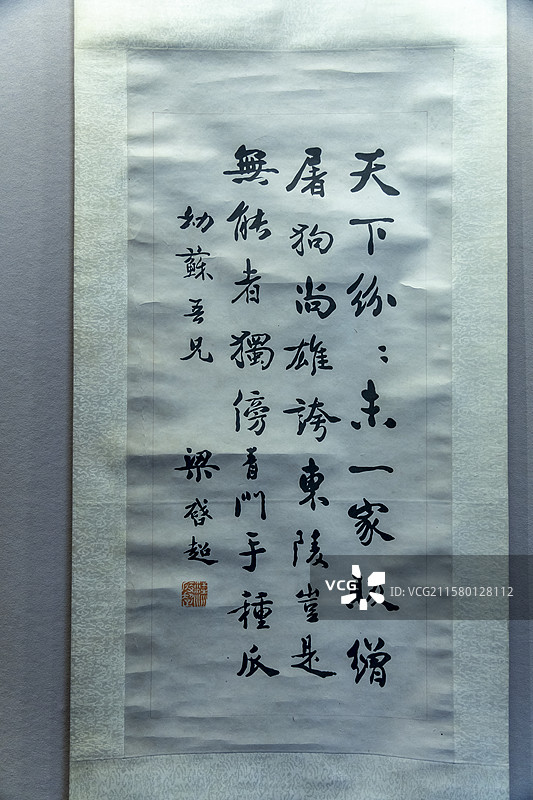 天下紛〻未一家販繒
屠狗尚雄誇東陵豈是
無能者獨傍青門手種瓜
劫蘇吾兄
梁啓超
VCG
ID:VCG211580128112